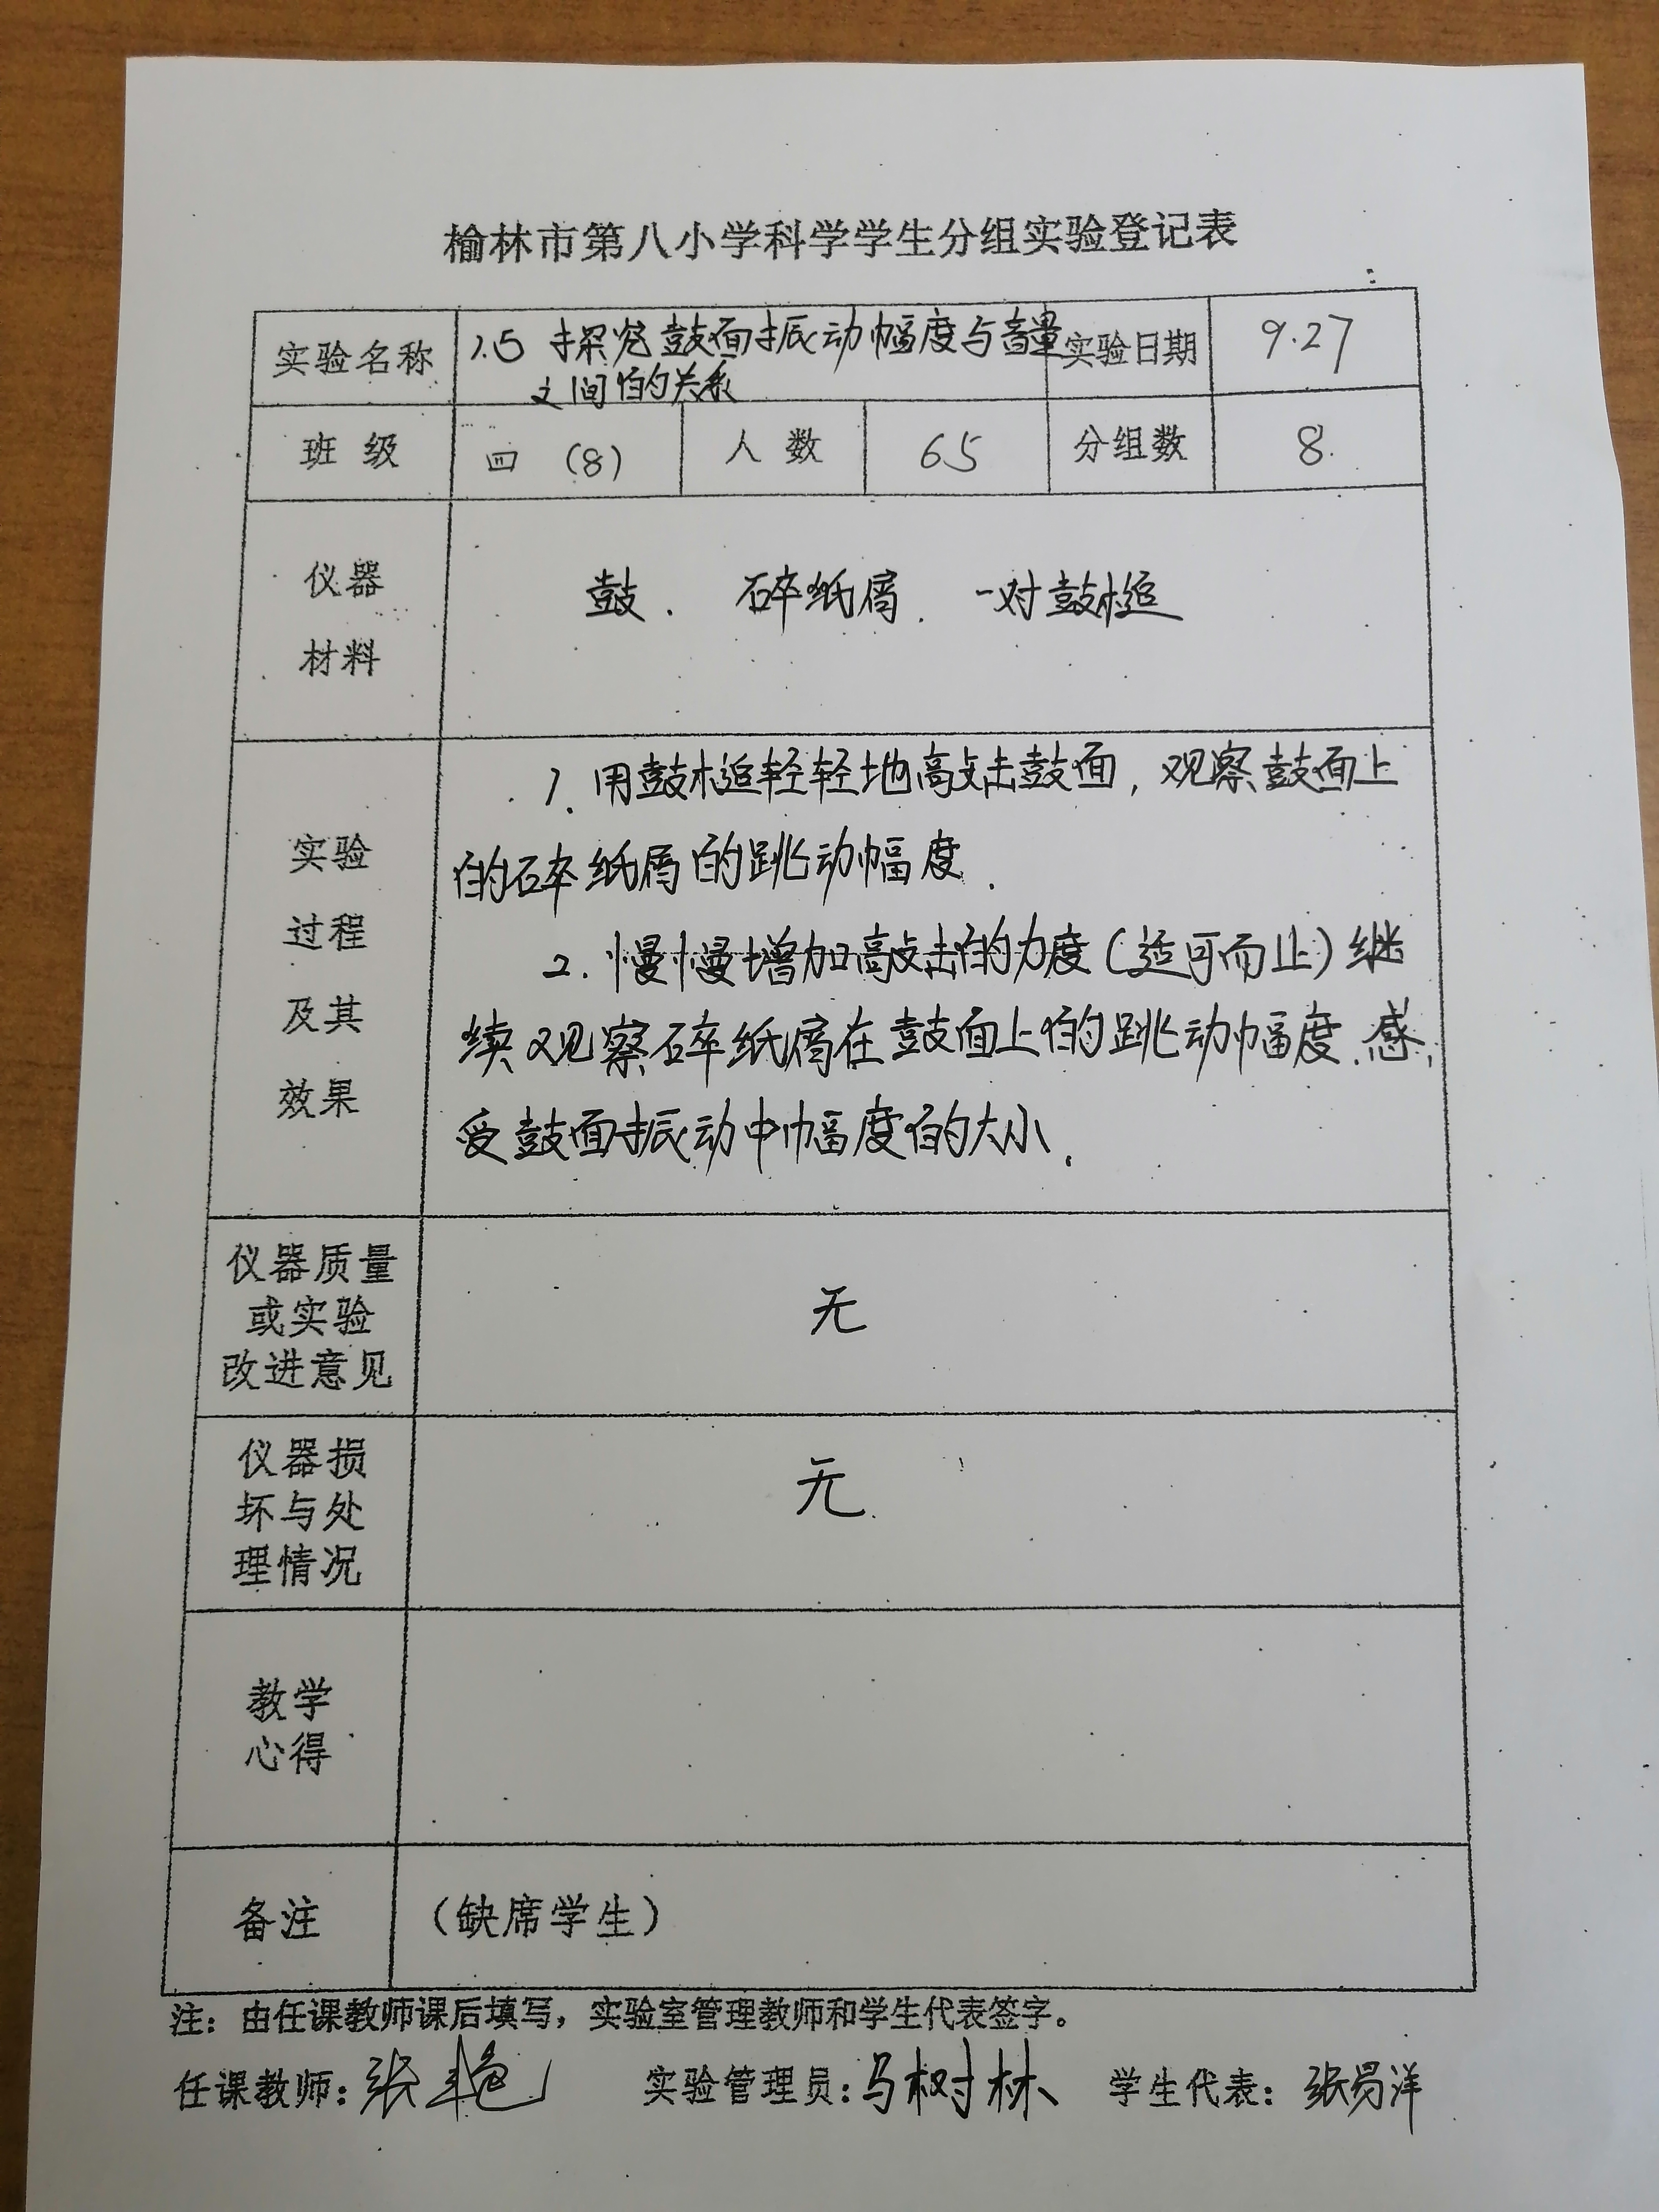 榆林市第八小学科学学生分组实验登记表
实验名称 1.5 探究鼓面振动幅度与音量 实验日期 9.27
之间的关系
班级 四 (8) 人数 65 分组数 8
仪器
材料
鼓、碎纸屑、一对鼓槌
实验
过程
及其
效果
1. 用鼓槌轻轻地敲击鼓面，观察鼓面上
的碎纸屑的跳动幅度.
2. 慢慢增加敲击的力度(适可而止)继
续观察碎纸屑在鼓面上的跳动幅度.感
受鼓面振动中幅度的大小.
仪器质量
或实验
改进意见
无
仪器损
坏与处
理情况
无
教学
心得
备注 （缺席学生）
注：由任课教师课后填写，实验室管理教师和学生代表签字。
任课教师：张艳 实验管理员：马树林 学生代表：张易洋